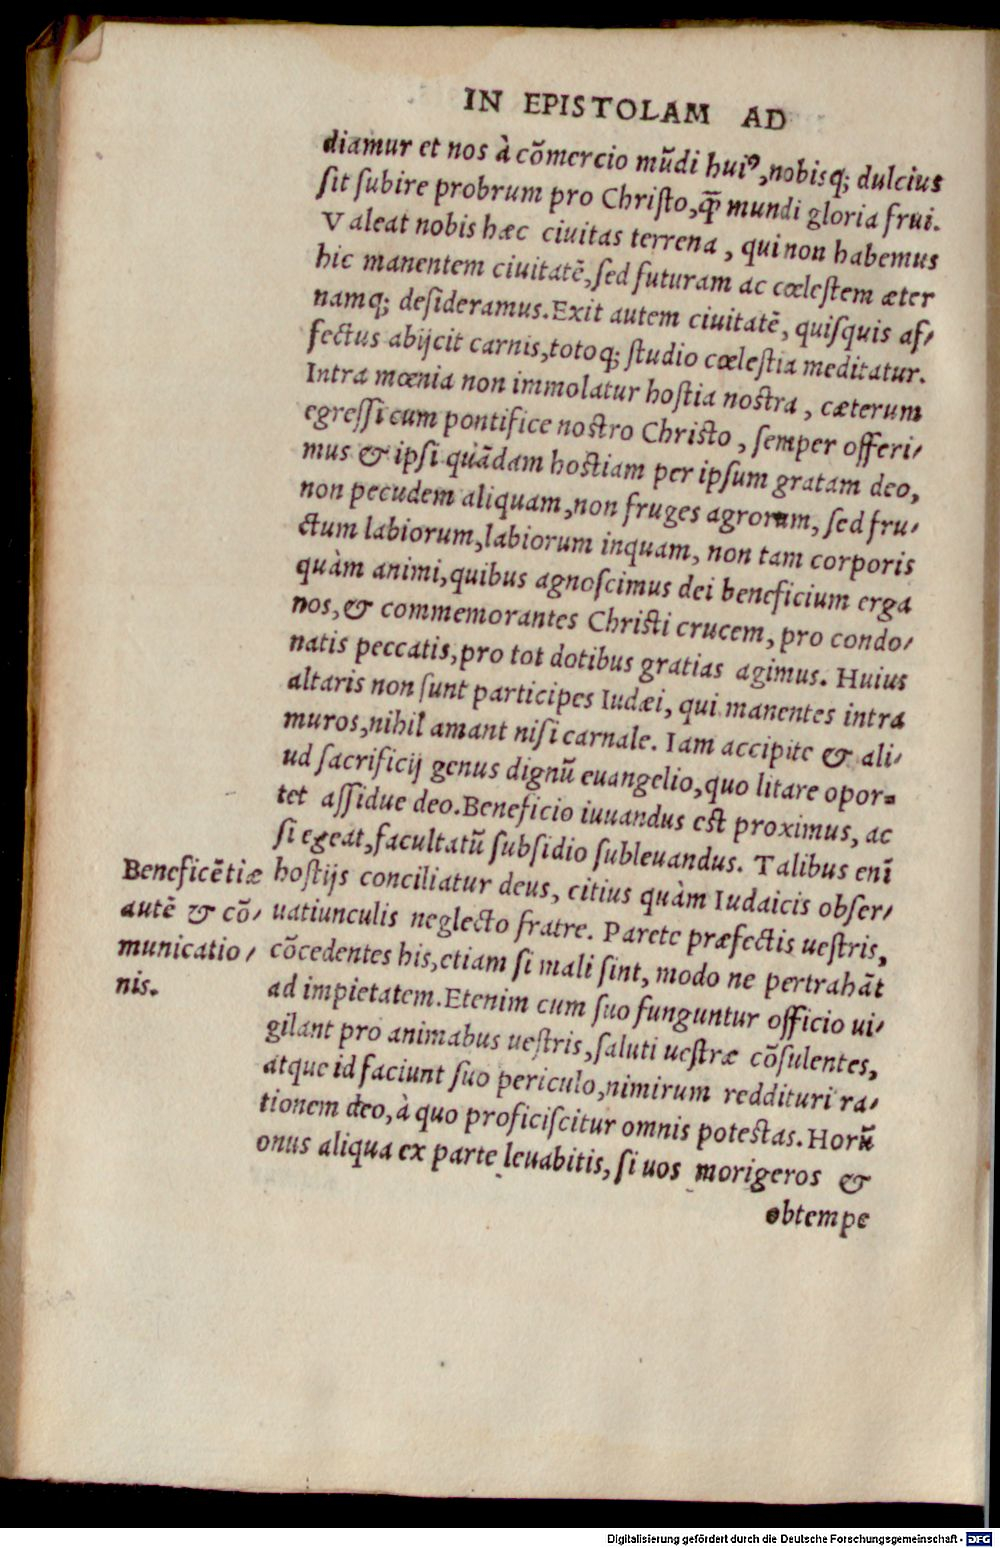 IN EPISTOLAM AD
diamur et nos à cõmercio mũdi huiꝰ, nobisq; dulcius
ſit ſubire probrum pro Chriſto, q̃ mundi gloria frui.
Valeat nobis hæc ciuitas terrena, qui non habemus
hic manentem ciuitatẽ, ſed futuram ac cœleſtem æter
namq; deſideramus. Exit autem ciuitatẽ, quiſquis af⸗
fectus abijcit carnis, totoq; ſtudio cœleſtia meditatur.
Intra mœnia non immolatur hoſtia noſtra, cæterum
egreſſi cum pontifice noſtro Chriſto, ſemper offeri⸗
mus & ipſi quãdam hoſtiam per ipſum gratam deo,
non pecudem aliquam, non fruges agrorum, ſed fru⸗
ctum labiorum, labiorum inquam, non tam corporis
quàm animi, quibus agnoſcimus dei beneficium erga
nos, & commemorantes Chriſti crucem, pro condo⸗
natis peccatis, pro tot dotibus gratias agimus. Huius
altaris non ſunt participes Iudæi, qui manentes intra
muros, nihil amant niſi carnale. Iam accipite & ali⸗
ud ſacrificij genus dignũ euangelio, quo litare opor⸗
tet aſſidue deo. Beneficio iuuandus est proximus, ac
ſi egeat, facultatũ ſubſidio ſubleuandus. Talibus enĩ
hoſtijs conciliatur deus, citius quàm Iudaicis obſer⸗
uatiunculis neglecto fratre. Parete præfectis ueſtris,
cõcedentes his, etiam ſi mali ſint, modo ne pertrahãt
ad impietatem. Etenim cum ſuo funguntur officio ui⸗
gilant pro animabus ueſtris, ſaluti ueſtræ cõſulentes,
atque id faciunt ſuo periculo, nimirum reddituri ra⸗
tionem deo, à quo proficiſcitur omnis potestas. Horũ
onus aliqua ex parte leuabitis, ſi uos morigeros &
obtempe
Beneficẽtiæ
autẽ & cõ⸗
municatio⸗
nis.
Digitalisierung gefördert durch die Deutsche Forschungsgemeinschaft - DFG